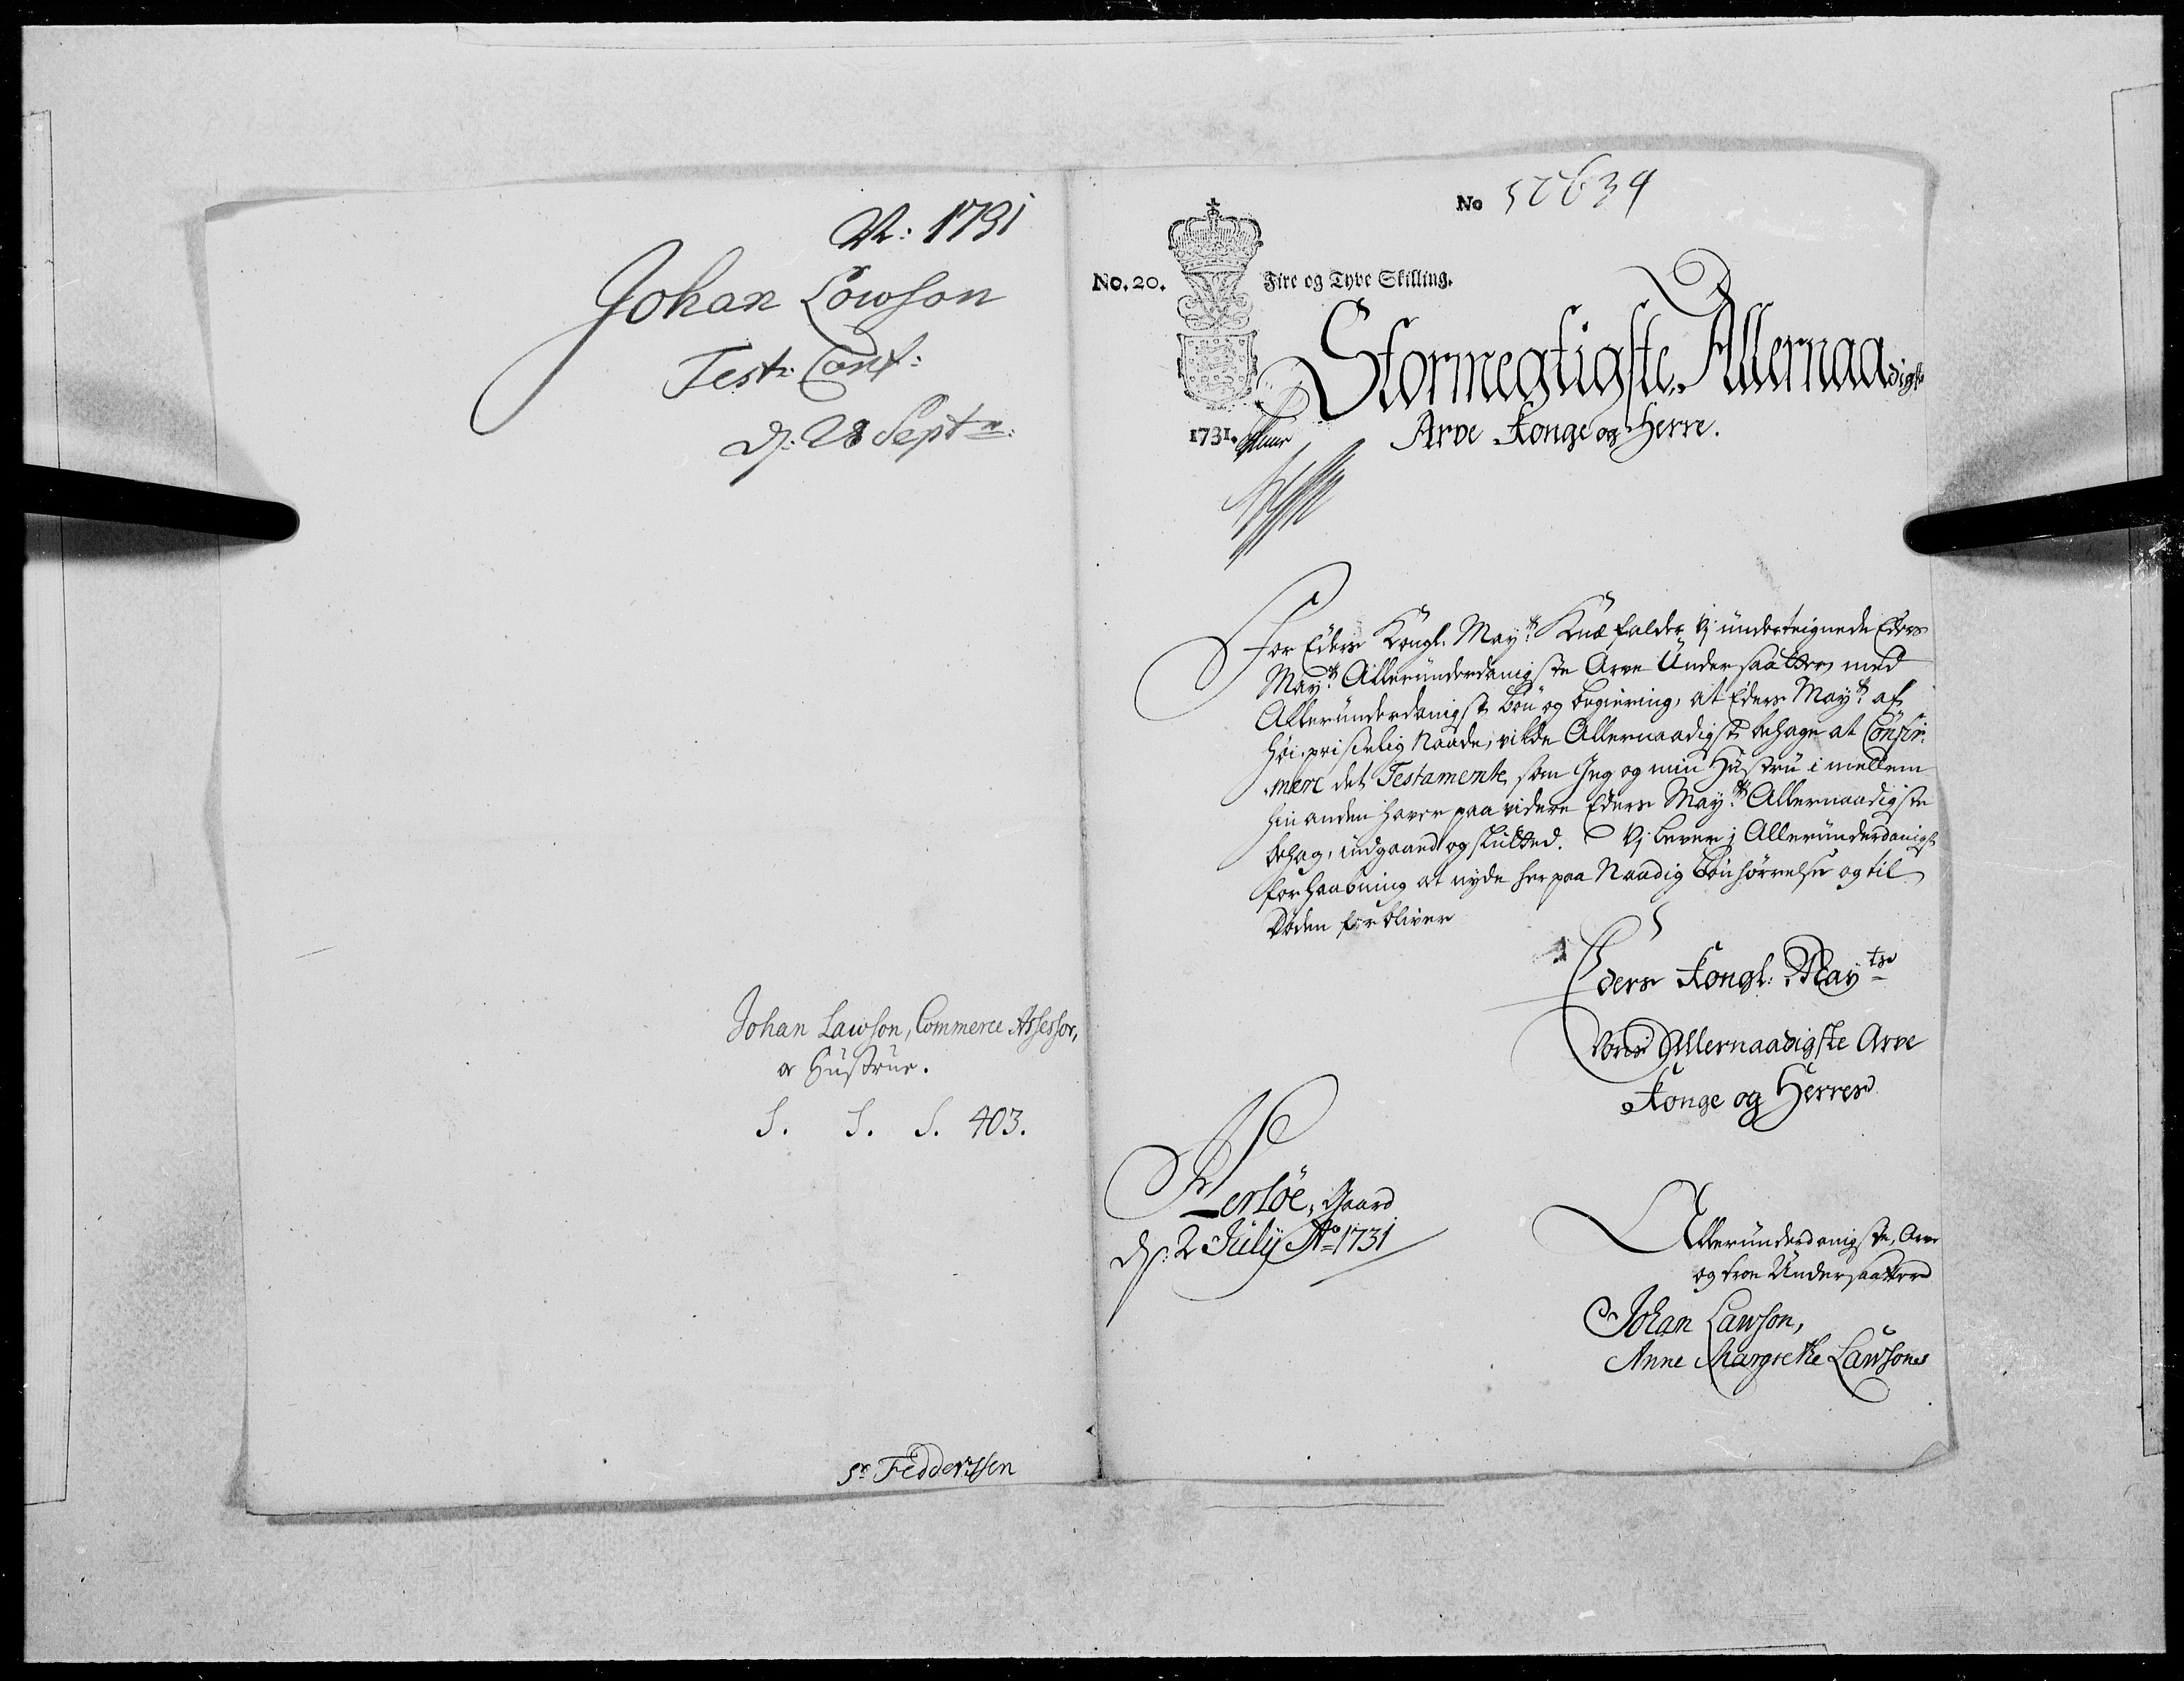 A: 1731
Johan Lowson
Test: Conf:
d: 28 Septr:
Johan Lawson, Commerce Assessor,
oc Hüstrue.
S. S. S. 403.
Sr Feddersen
No 50634
No. 20. Fire og Tyve Skilling.
1731.
Stormegtigste, Allernaadigste
Arve Konge og Herre.
For Eders Kongl. Mayts Knæfalder Vj ünderteignede Eders
Mayts Alleründerdanigste Arve Ündersaatter med
Alleründerdanigst bøn og begiering, at Eders Mayt af
høi-priselig Naade, vilde Allernaadigst behage at Confir-
mere det Testamente, som Jeg og min Hüstrü i mellem
hin anden haver paa videre Eders Mayts Allernaadigste
behag, indgaaed og slütted. Vj lever i Alleründerdanigst
forhaabning at nyde her paa Naadig bønhørrelse og til
Døden forbliver
Eders Kongl: Mayts
Vores Allernaadigste Arve
Konge og Herres
Gaard
d: 2 Jülij Ao 1731
Alleründerdanigste, Arve
og troe Ündersaattere
Johan Lawson,
Anne Margrethe Lawsones